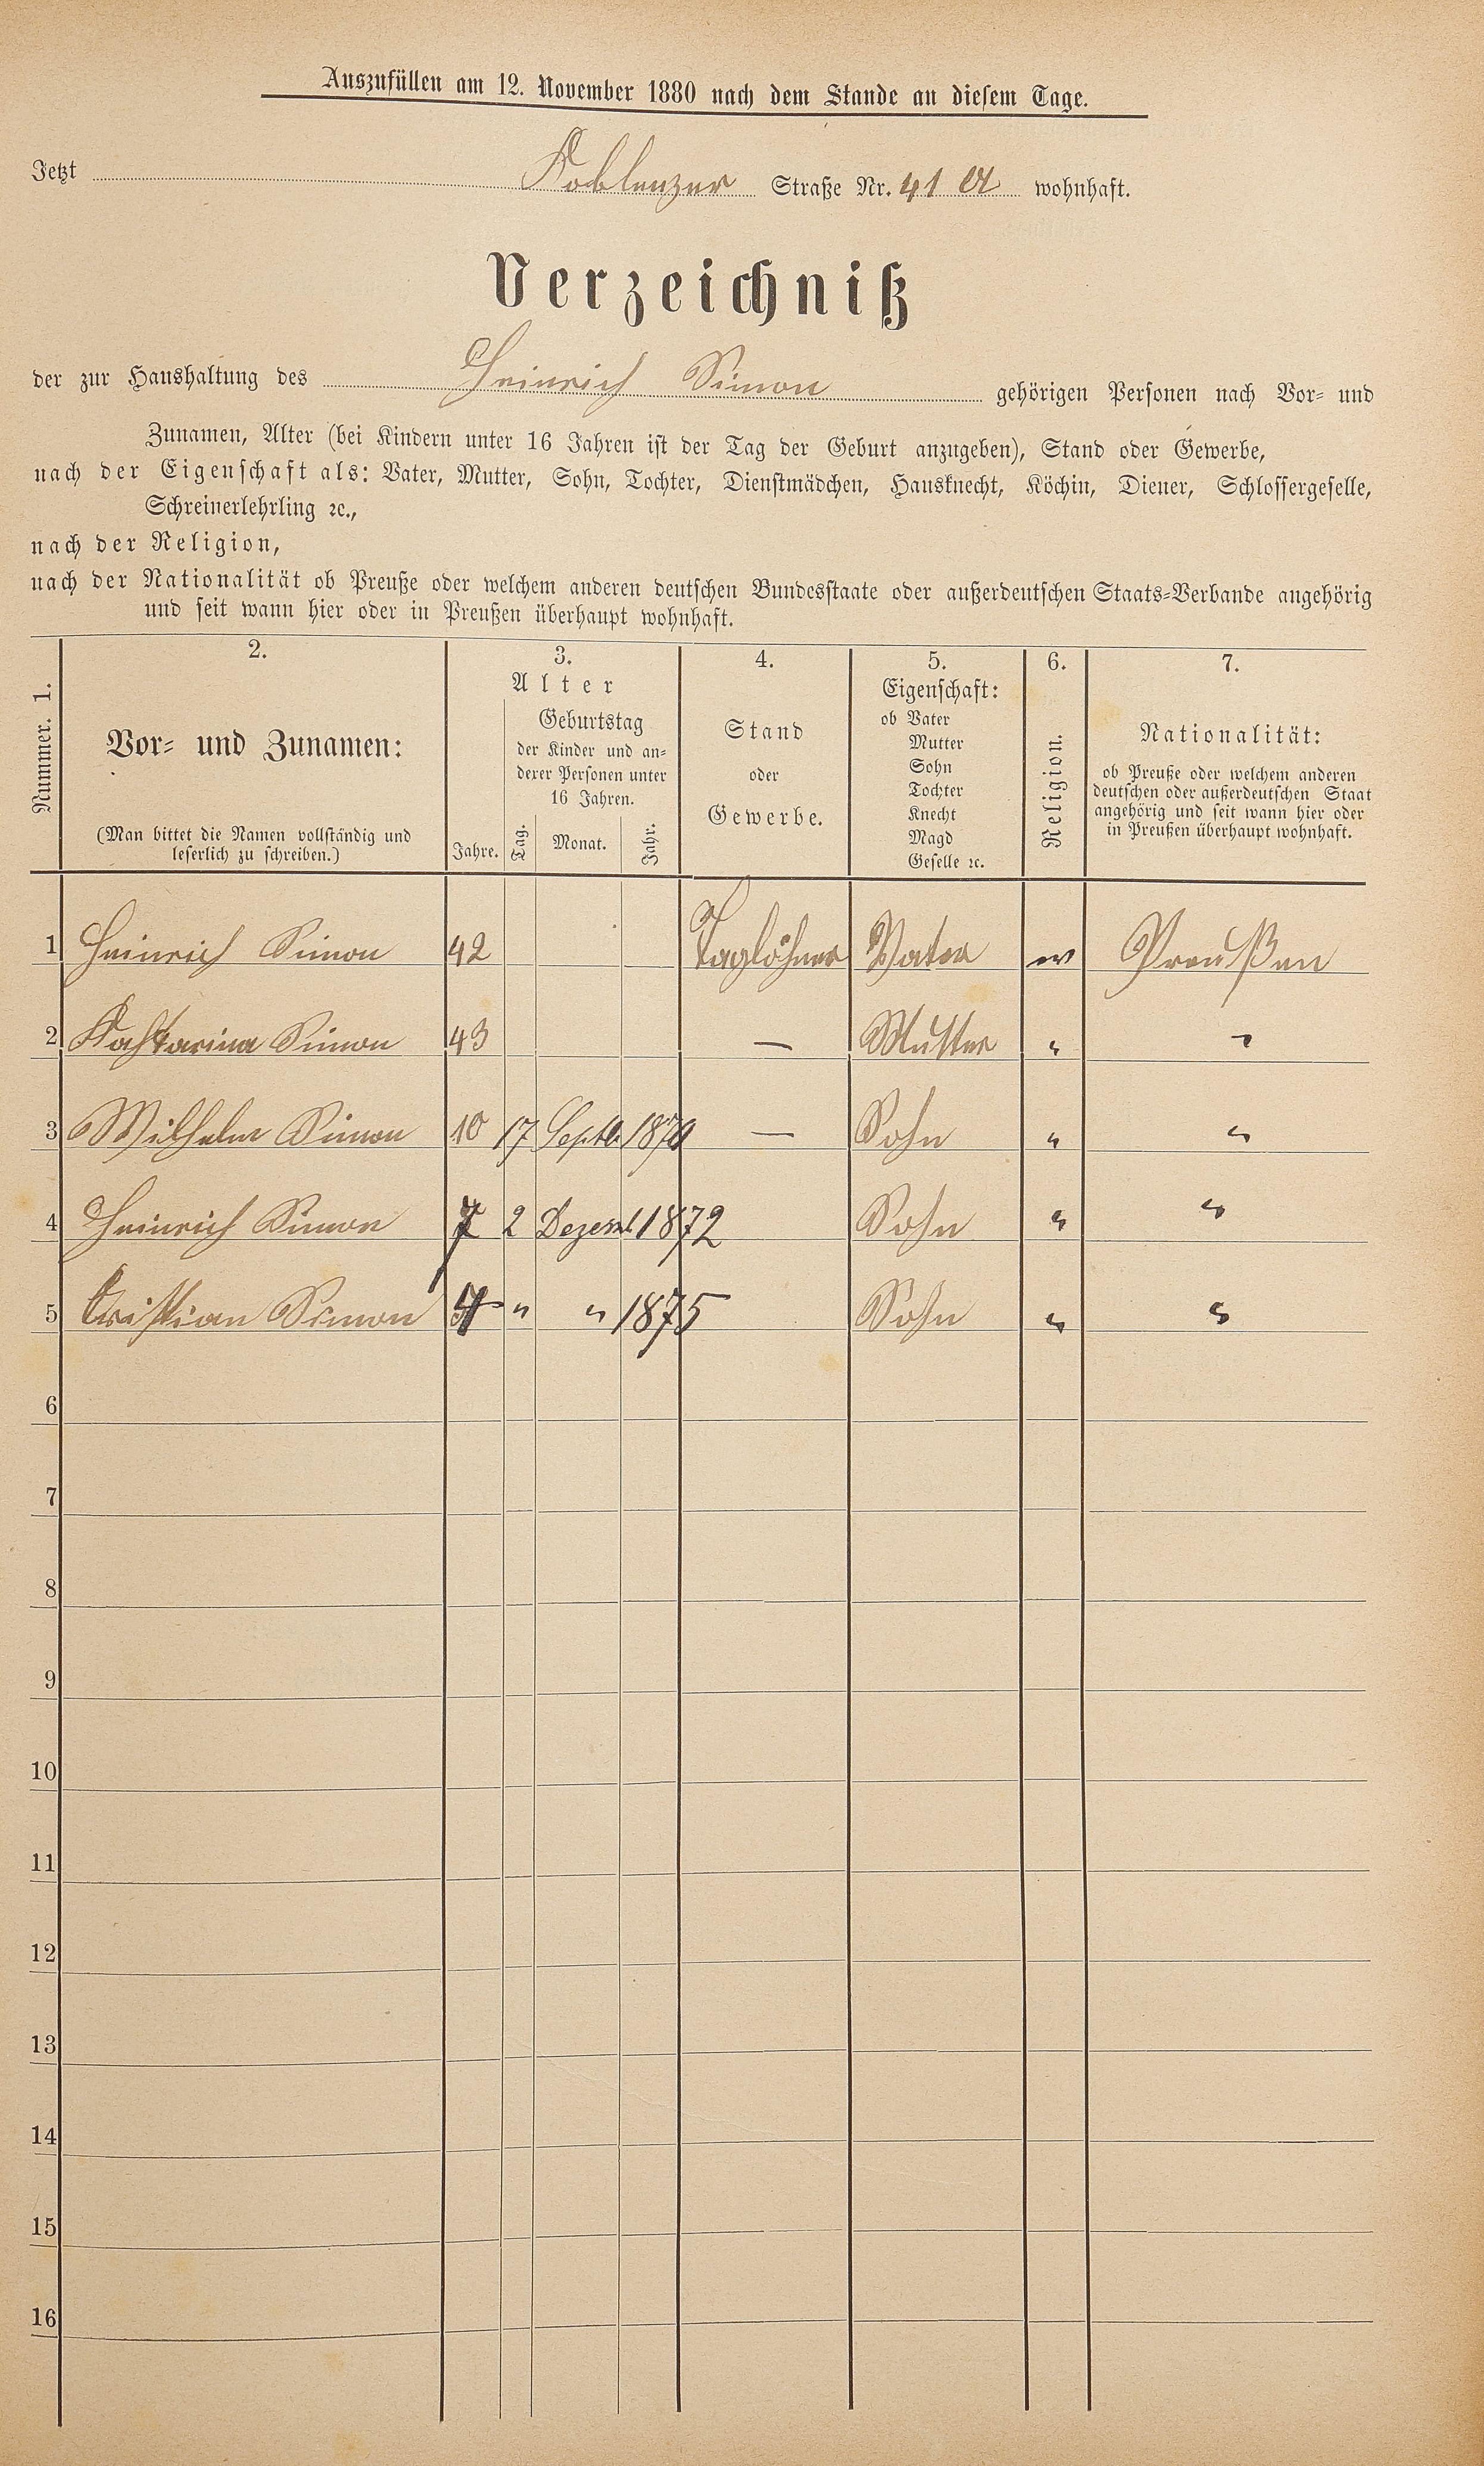 Auszufüllen am 12. November 1880 nach dem Stande an diesem Tage.
Jetzt Koblenzer Straße Nr. 41 a wohnhaft.
Verzeichniß
der zur Haushaltung des Heinrich Simon gehörigen Personen nach Vor- und
Zunamen, Alter (bei Kindern unter 16 Jahren ist der Tag der Geburt anzugeben), Stand oder Gewerbe,
nach der Eigenschaft als: Vater, Mutter, Sohn, Tochter, Dienstmädchen, Hausknecht, Köchin, Diener, Schlossergeselle,
Schreinerlehrling ꝛc.,
nach der Religion,
nach der Nationalität ob Preuße oder welchem anderen deutschen Bundesstaate oder außerdeutschen Staats-Verbande angehörig
und seit wann hier oder in Preußen überhaupt wohnhaft.
Nummer. 1.
2.
Vor- und Zunamen:
(Man bittet die Namen vollständig und
leserlich zu schreiben.)
3.
Alter
Geburtstag
der Kinder und an-
derer Personen unter
16 Jahren.
Jahre. Tag. Monat. Jahr.
4.
Stand
oder
Gewerbe.
5.
Eigenschaft:
ob Vater
Mutter
Sohn
Tochter
Knecht
Magd
Geselle ꝛc.
6.
Religion.
7.
Nationalität:
ob Preuße oder welchem anderen
deutschen oder außerdeutschen Staat
angehörig und seit wann hier oder
in Preußen überhaupt wohnhaft.
1 Heinrich Simon 42 Taglöhner Vater Preußen
2 Kahtarina Simon 43 — Mutter " "
3 Wilhelm Simon 10 17 Septb 1870 — Sohn " "
4 Heinrich Simon 7 2 Dezemb 1872 Sohn " "
5 Cristian Simon 4 " " 1875 Sohn " "
6
7
8
9
10
11
12
13
14
15
16